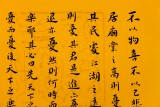 不以物喜不以己悲
居廟堂之高則憂
其民處江湖之遠
則憂其君是進亦憂
退亦憂然則何時而
樂耶其必曰先天下之
憂而憂後天下之樂